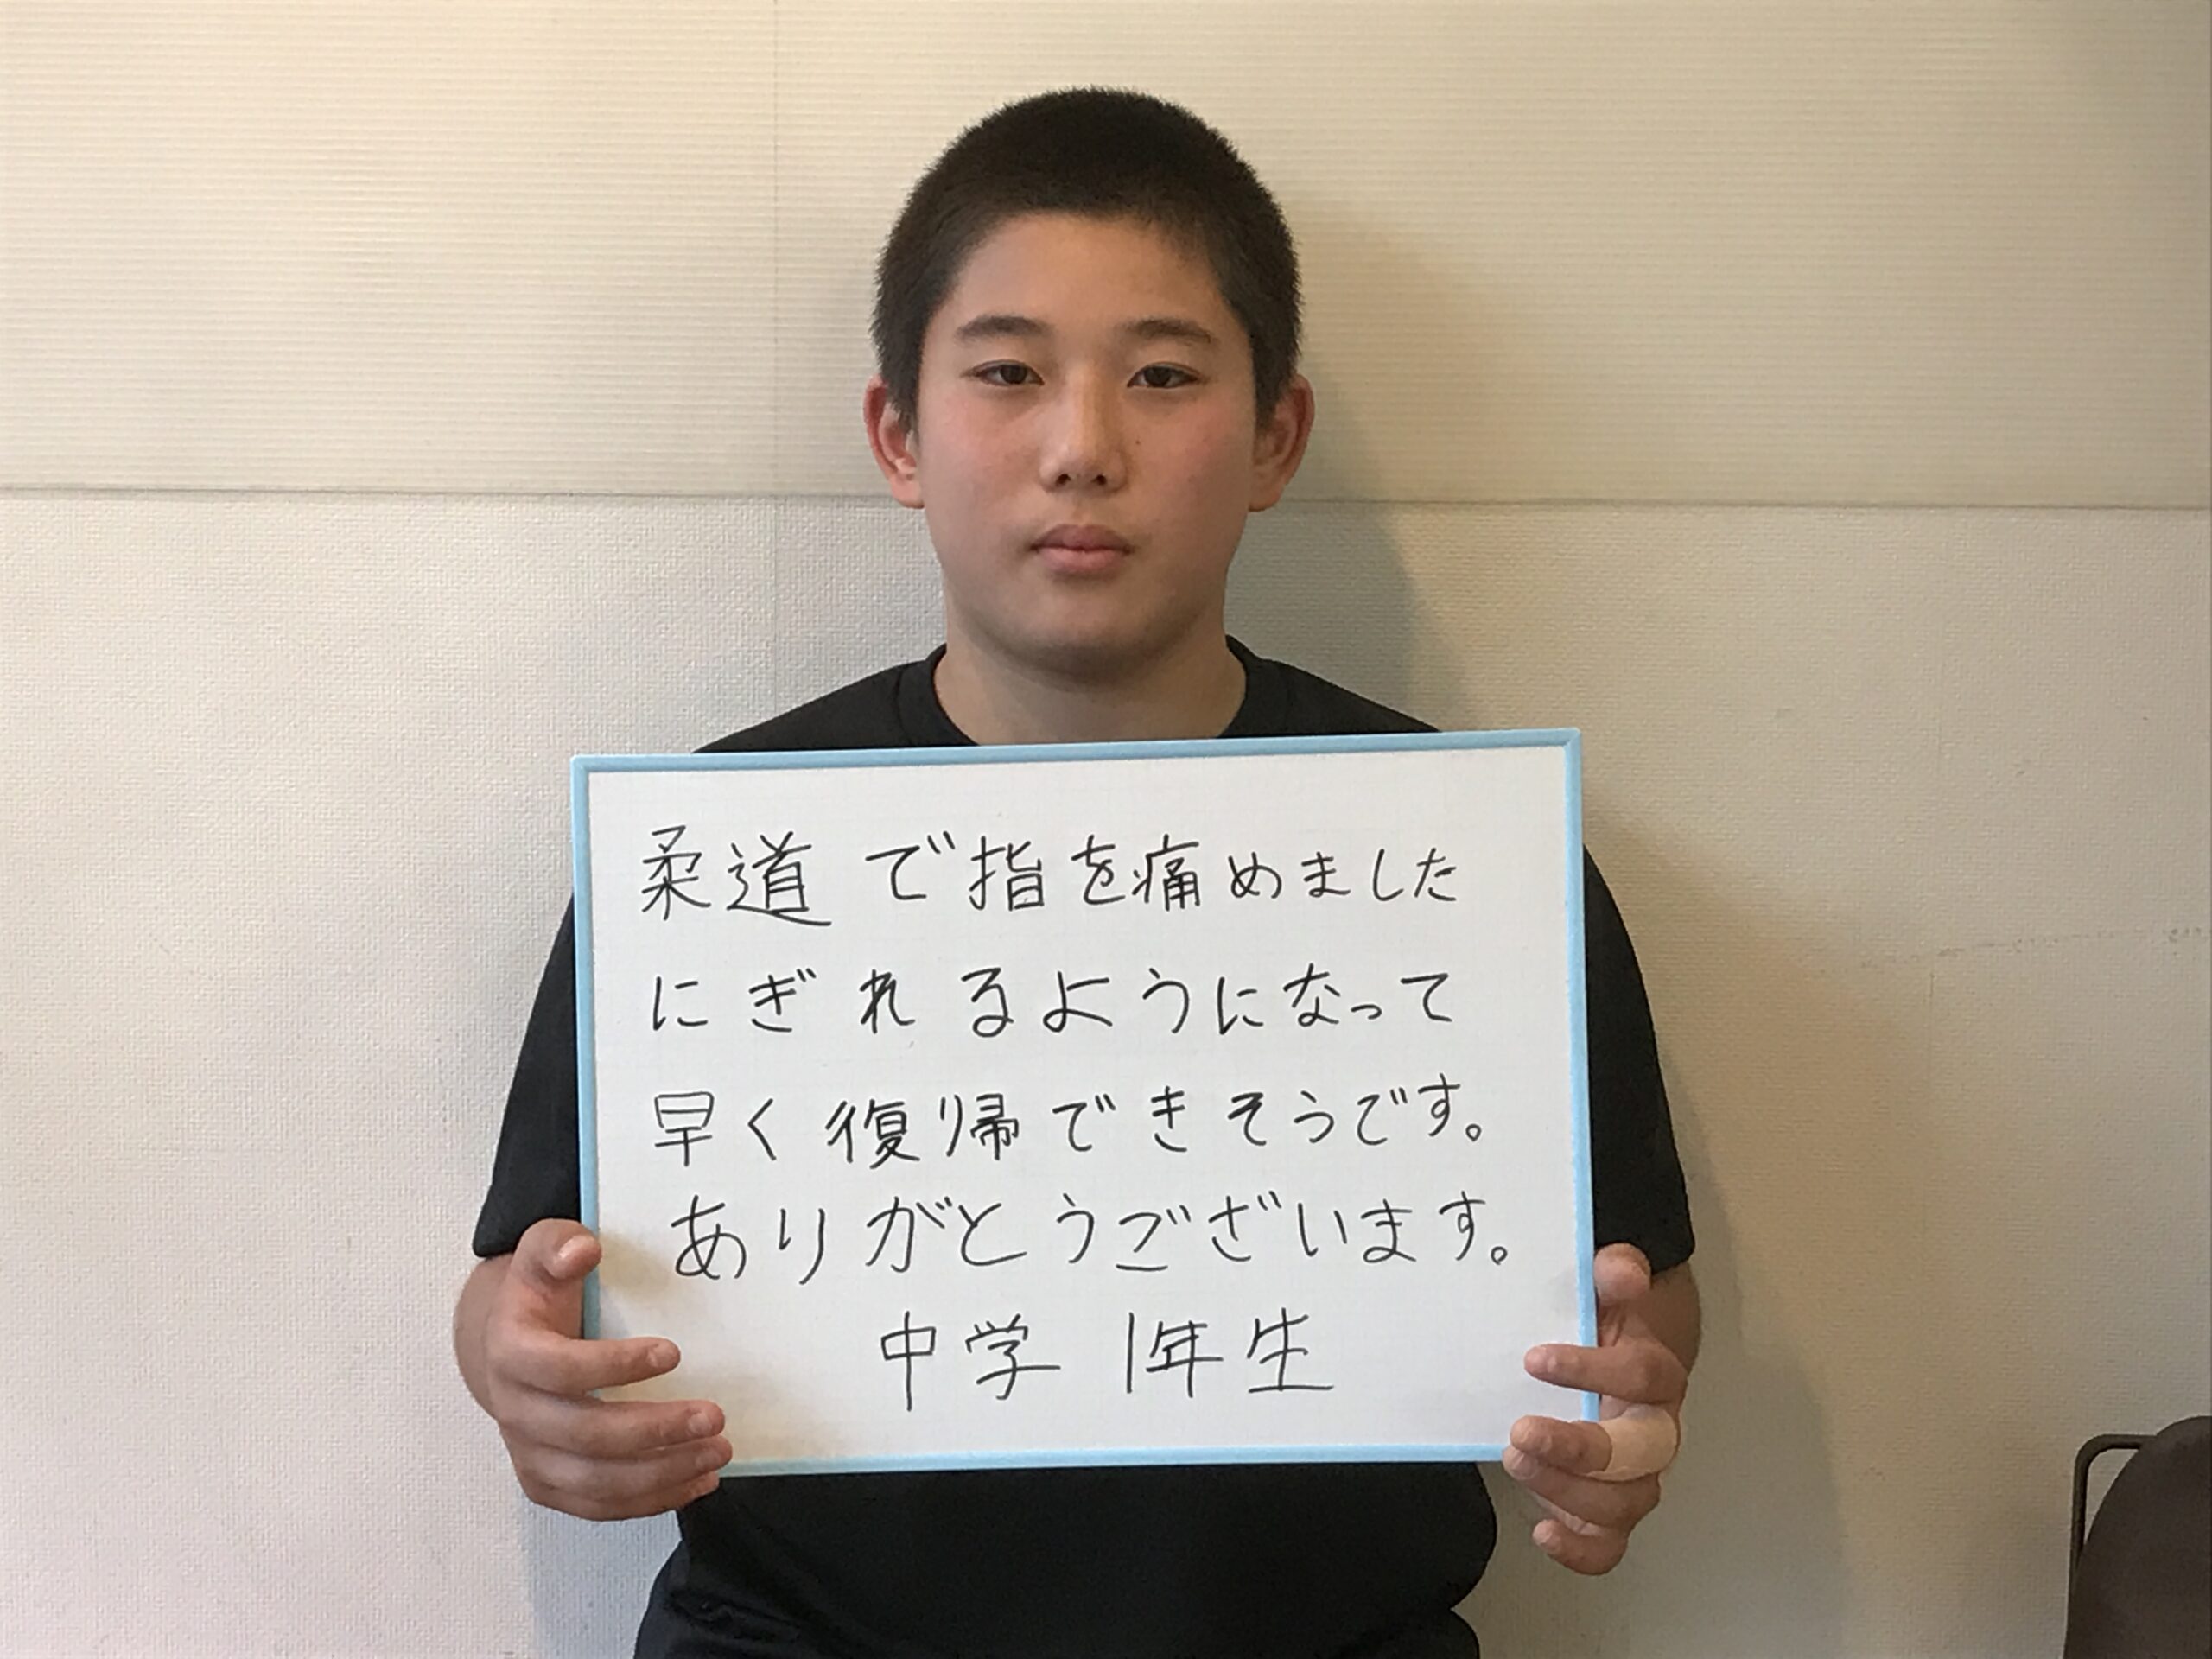 柔道で指を痛めました
にぎれるようになって
早く復帰できそうです。
ありがとうございます。
中学 1年生